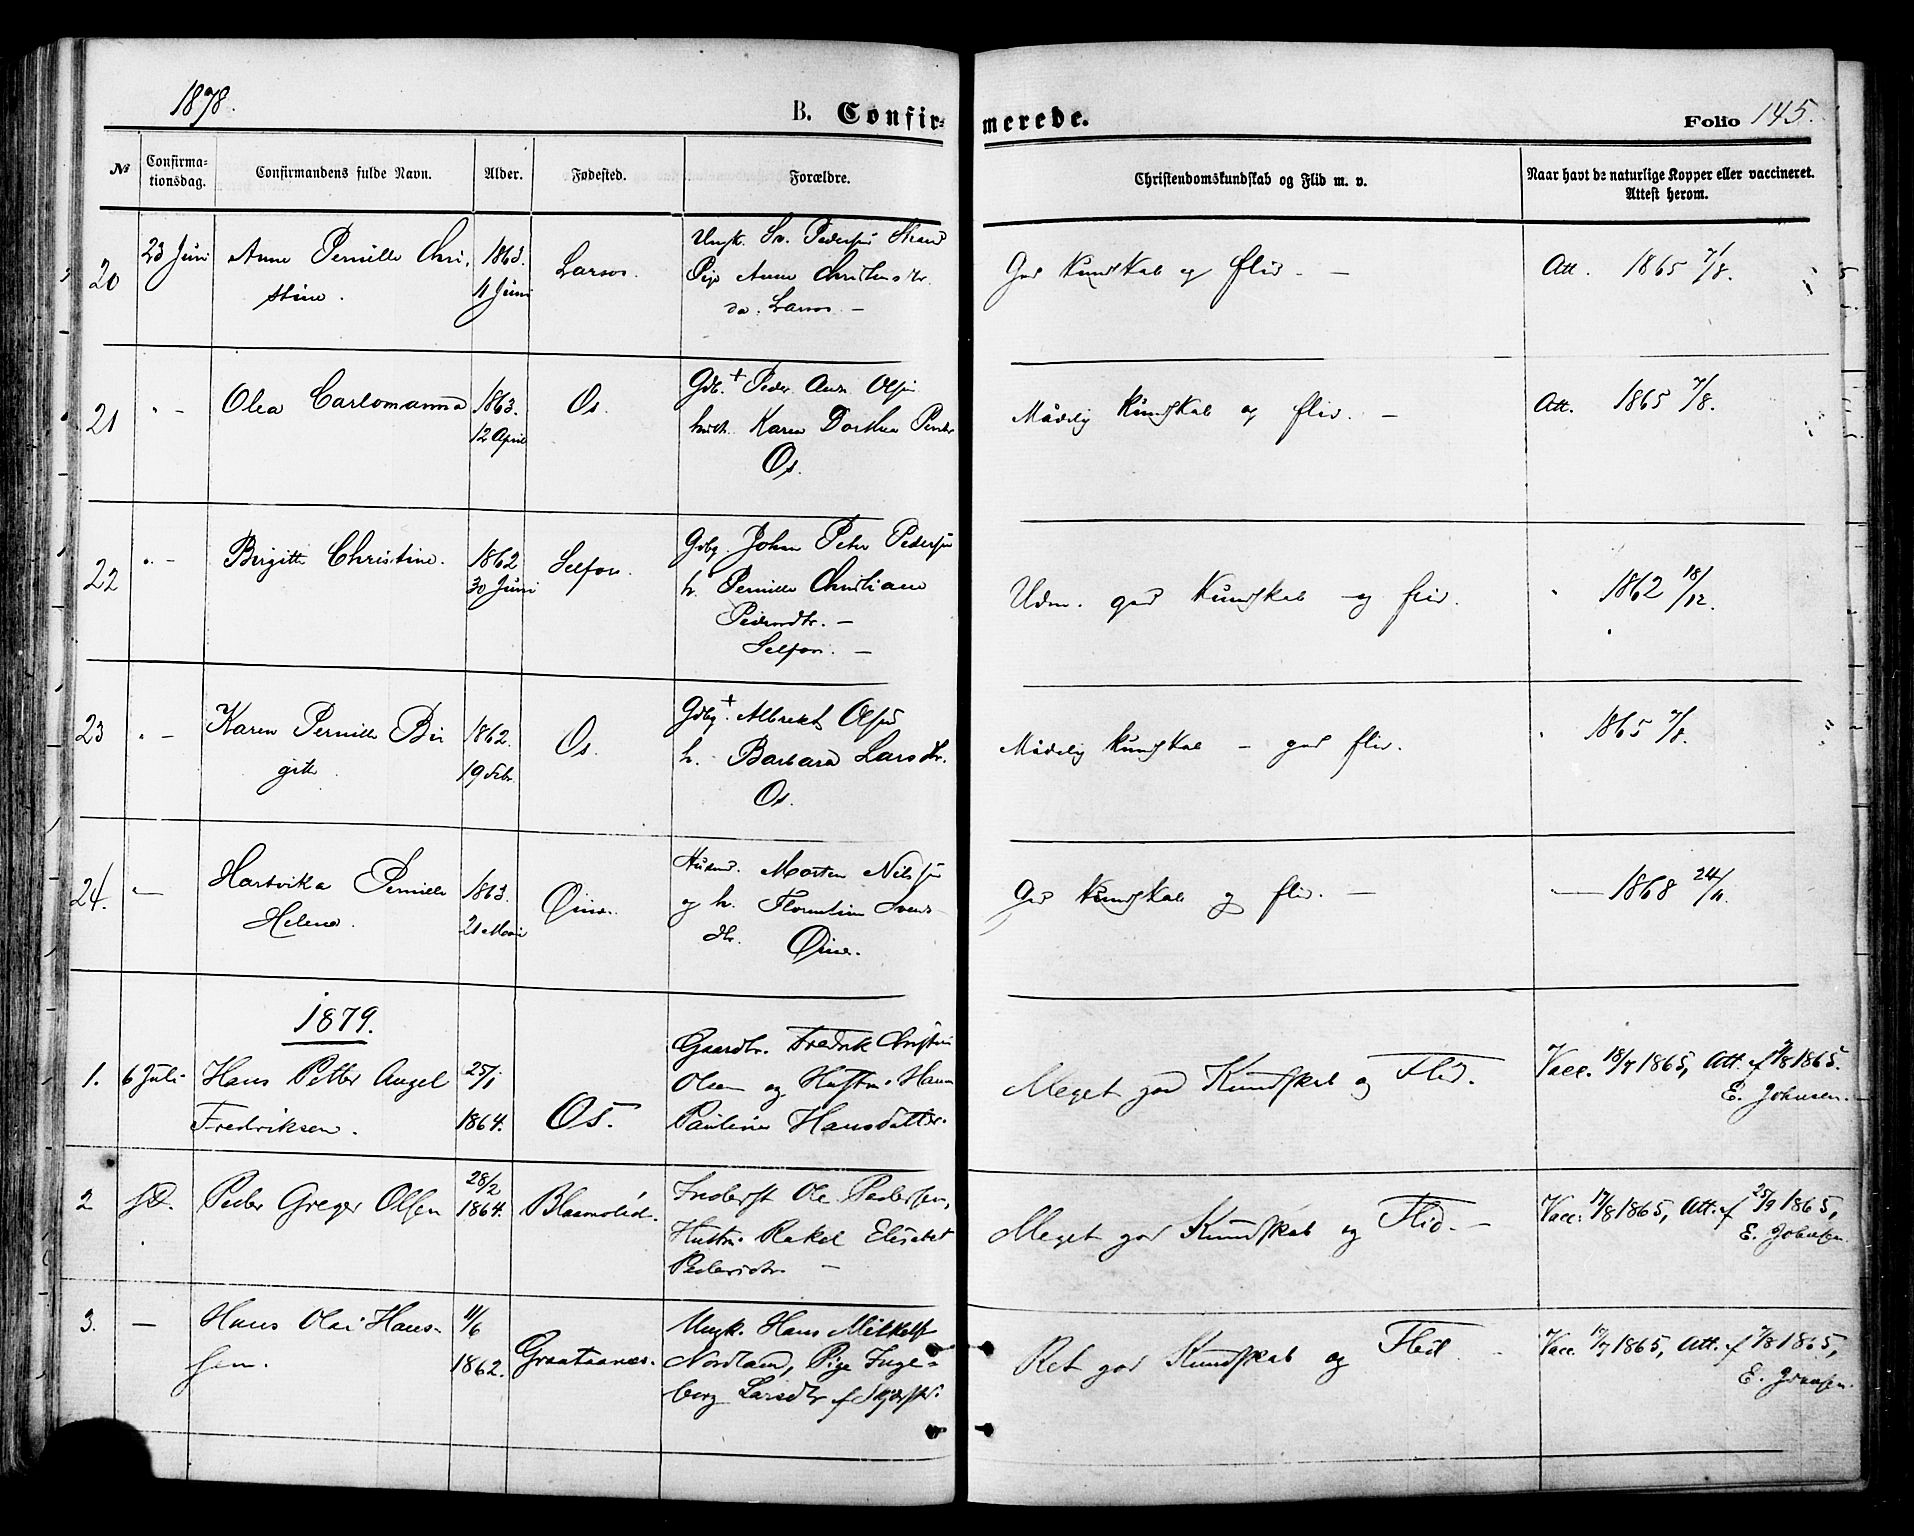 1878.
B. Confirmerede.
Folio 145.
№
Confirmationsdag.
Confirmandens fulde Navn.
Alder.
Fødested.
Forældre.
Christendomskundskab og Flid m. v.
Naar havt de naturlige Kopper eller vaccineret.
Attest herom.
20 23 Juni Anne Pernille Chri- 1863. Larsos. Ungk. Pedersen
stine. 11 Juni Pige Anne Christensdtr.
Larsos. —
God Kundskab og flid. — Att. 1865 7/8.
21 " - Olea Carlomanna 1863. Os. Gdb. + Peder Andr. Olsen
12 April Karen Dorthea
Os.
Mådelig Kundskab og flid. — Att. 1865 7/8.
22 " - Birgitte Christine. 1862 Selfors. Gdbg. Johan Peter Pedersen
30 Juni h. Pernille Christiane
Pedersdtr. —
Selfors. —
Udm. god Kundskab og flid. " 1862 18/12.
23 " - Karen Pernille Bir 1862. Os. Gdbg. + Albrekt Olsen
gitte 19 Febr. h. Barbara Larsdtr.
Os.
Mådelig Kundskab — god flid. " 1865 7/8.
24. — Hartvika Pernille 1863. Husmd. Morten Nilssen
Helene. 21 og h. Florentine Svens-
dtr.
God Kundskab og flid. — — 1868 24/11.
1879.
1. 6 Juli Hans Petter Angel 25/1 Gaardbr. Fredrik Christian
Fredriksen. 1864. Os. Olsen og Hustru Hanna
Paulina Hansdatter.
Meget god Kundskab og Flid. Vacc. 18/7 1865, Att. af 7/8 1865.
E. Johnsen.
2 sD. Peder Greger Olsen 28/2 1864. Inderst Ole Pedersen,
Hustru Rakel Elisabet
Pedersdtr. —
Meget god Kundskab og Flid. — Vacc. 17/8 1865, Att. af 25/9 1865,
E. Johnsen.
3. — Hans Olai Hans- 11/6 Ungk. Hans Mikkels
sen. 1862. Graataanes. Nordland, Pige Inge-
borg Larsdtr af
Ret god Kundskab og Flid — Vacc. 17/7 1865, Att. af 7/8 1865,
E. Johnsen.